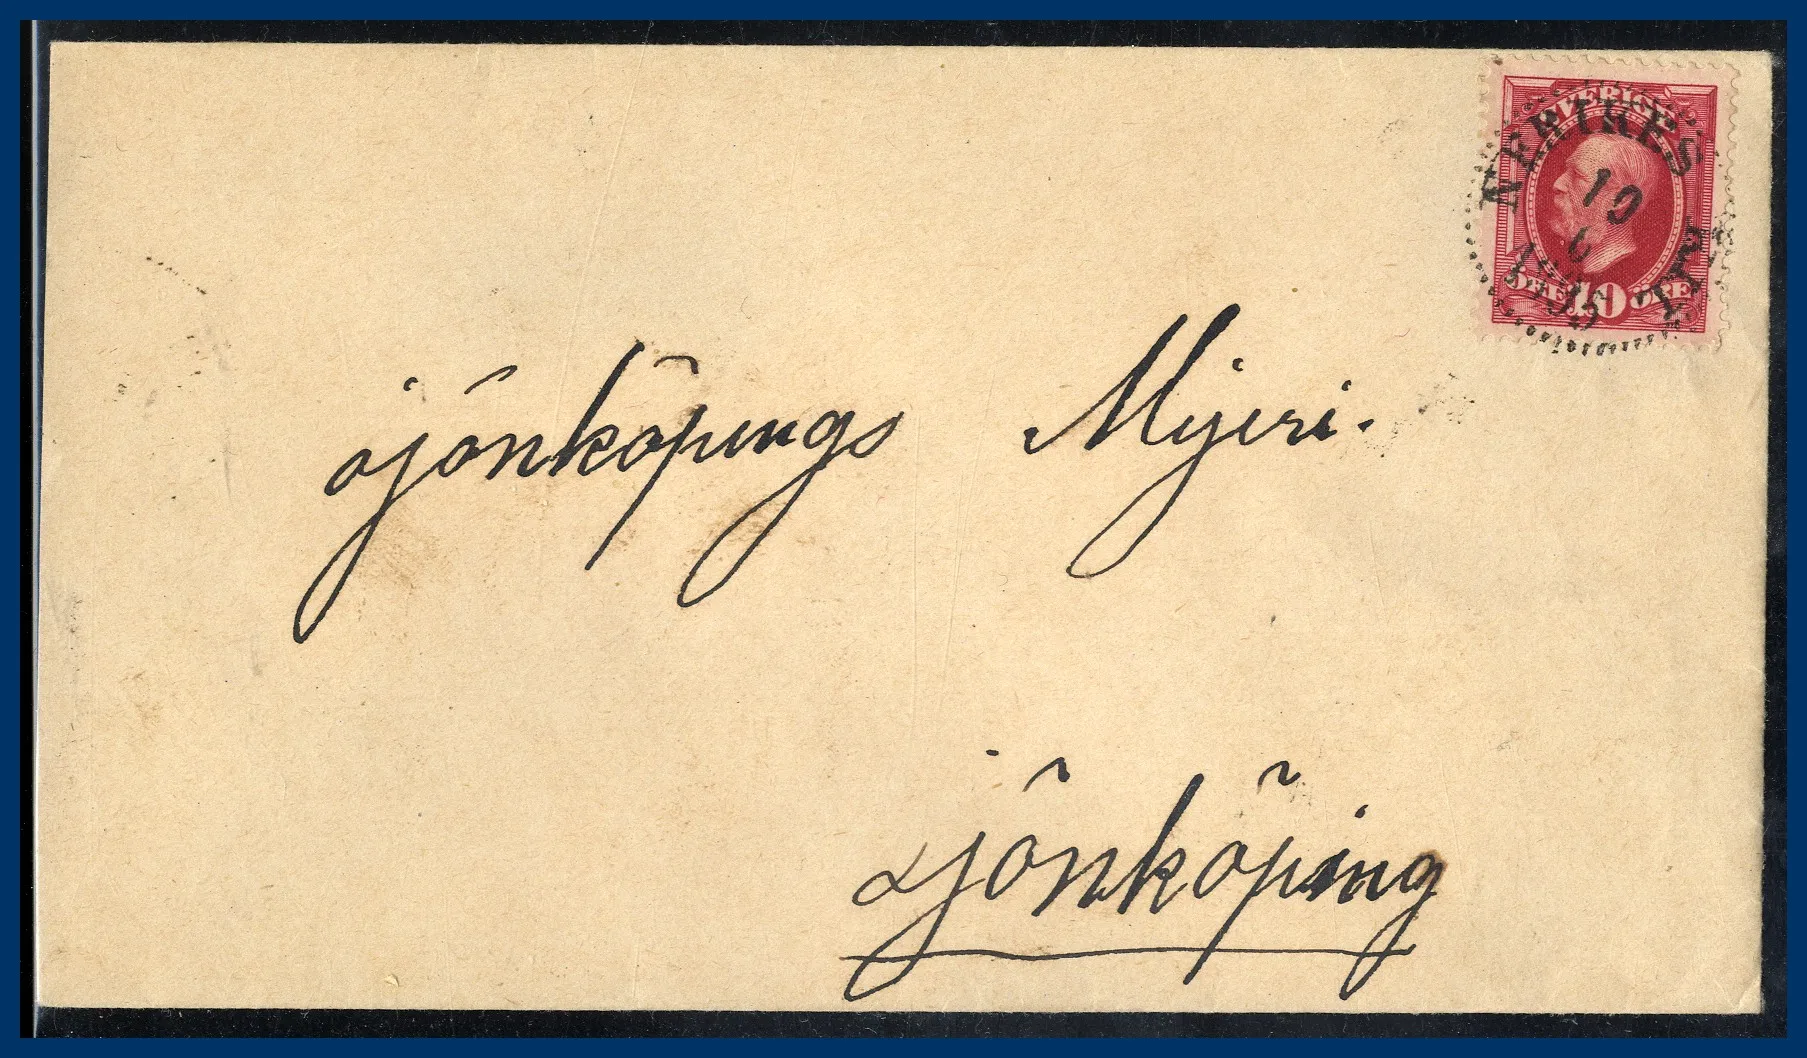 SVERIGE
ÖRE 10 ÖRE
10
6
Jönköpings Mejeri.
Jönköping